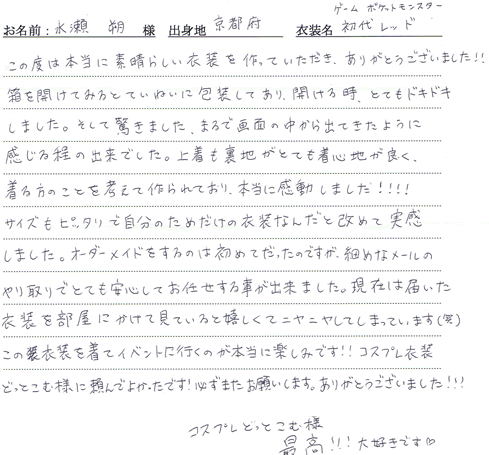 ゲーム ポケットモンスター
お名前：水瀬 朔 様 出身地 京都府 衣装名 初代レッド
この度は本当に素晴らしい衣装を作っていただき、ありがとうございました!!
箱を開けてみるとていねいに包装しており、開ける時、とてもドキドキ
しました。そして驚きました、まるで画面の中から出てきたように
感じる程の出来でした。上着も裏地がとても着心地が良く、
着る方のことを考えて作られており、本当に感動しました!!!!
サイズもピッタリで自分のためだけの衣装なんだと改めて実感
しました。オーダーメイドをするのは初めてだったのですが、細めなメールの
やり取りでとても安心してお任せする事が出来ました。現在は届いた
衣装を部屋にかけて見ていると嬉しくてニヤニヤしてしまっています(笑)
この衣装を着てイベントに行くのが本当に楽しみです!! コスプレ衣装
どっとこむ様に頼んでよかったです!必ずまたお願いします。ありがとうございました!!!
コスプレどっとこむ様
最高!!! 大好きです♡